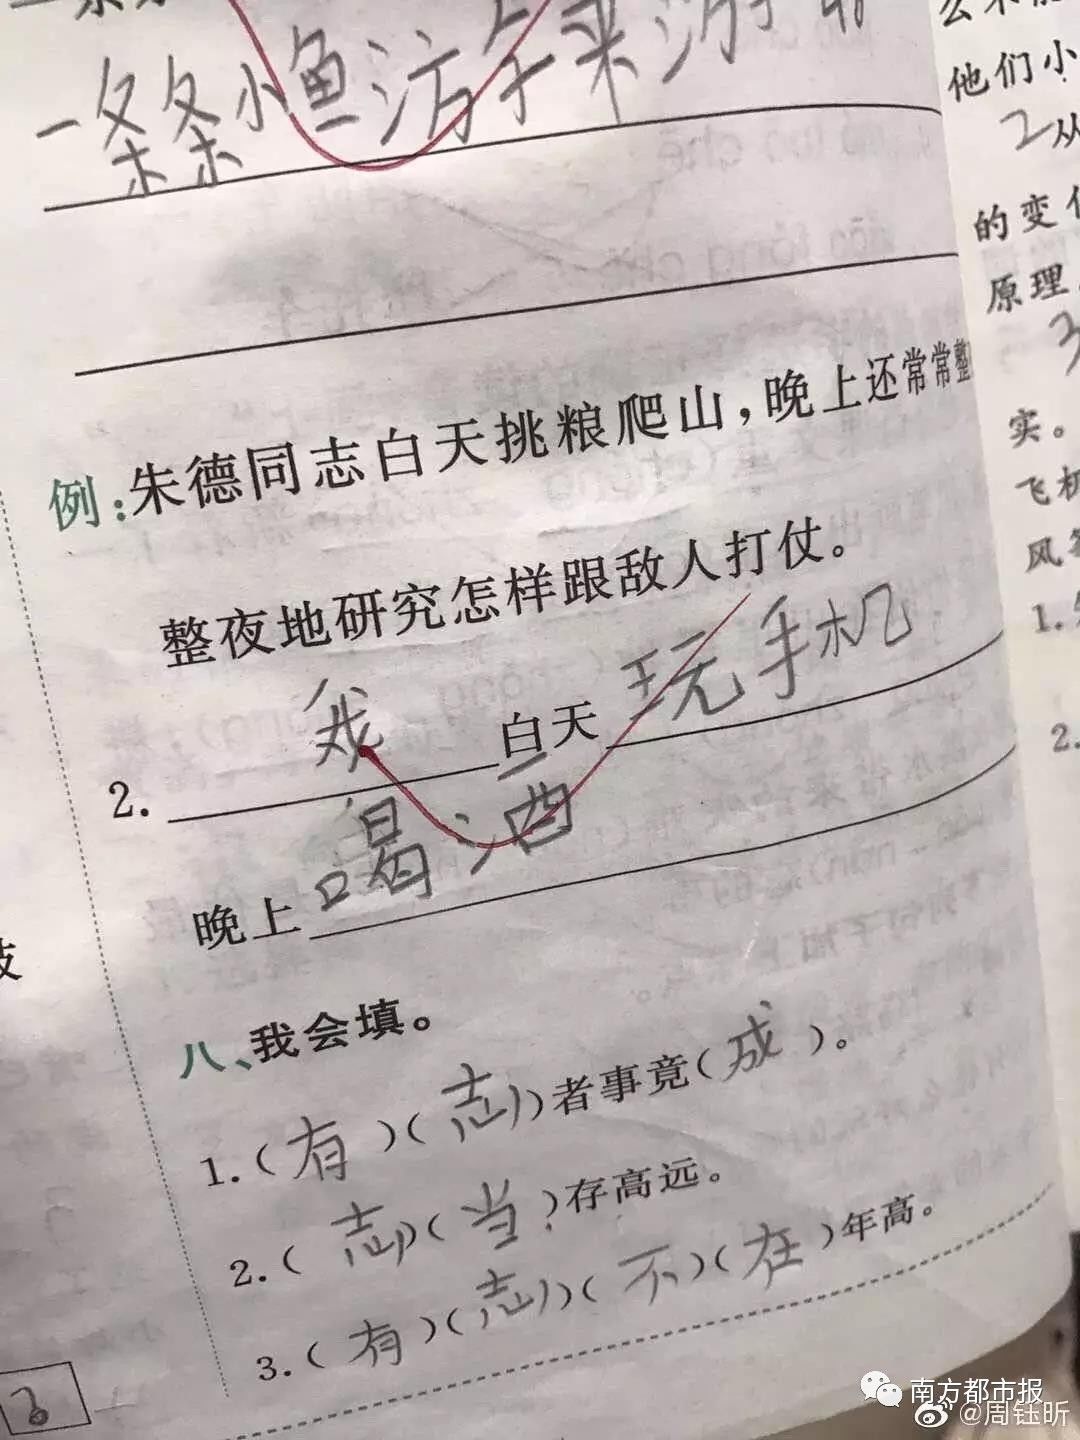 一条条小鱼游乐来游
例：朱德同志白天挑粮爬山，晚上还常常整
整夜地研究怎样跟敌人打仗。
2. 我 白天 玩手机
晚上 喝酒
八、我会填。
1.（有）（志）者事竟（成）。
2.（志）（当）存高远。
3.（有）（志）（不）（在）年高。
他们小
2从
的变
原理
3
实。
飞机
风
1.
2.
南方都市报
@周钰昕